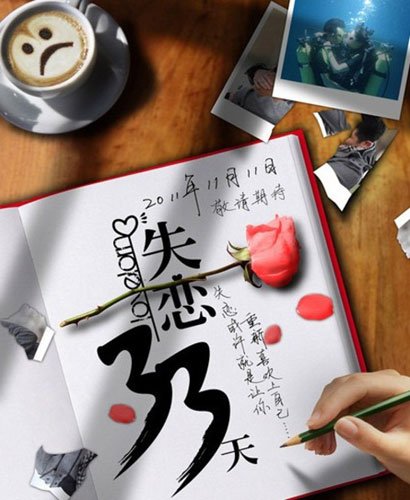 2011年11月11日
敬请期待
失恋
33天
失恋或许就是让你
重新喜欢上自己…